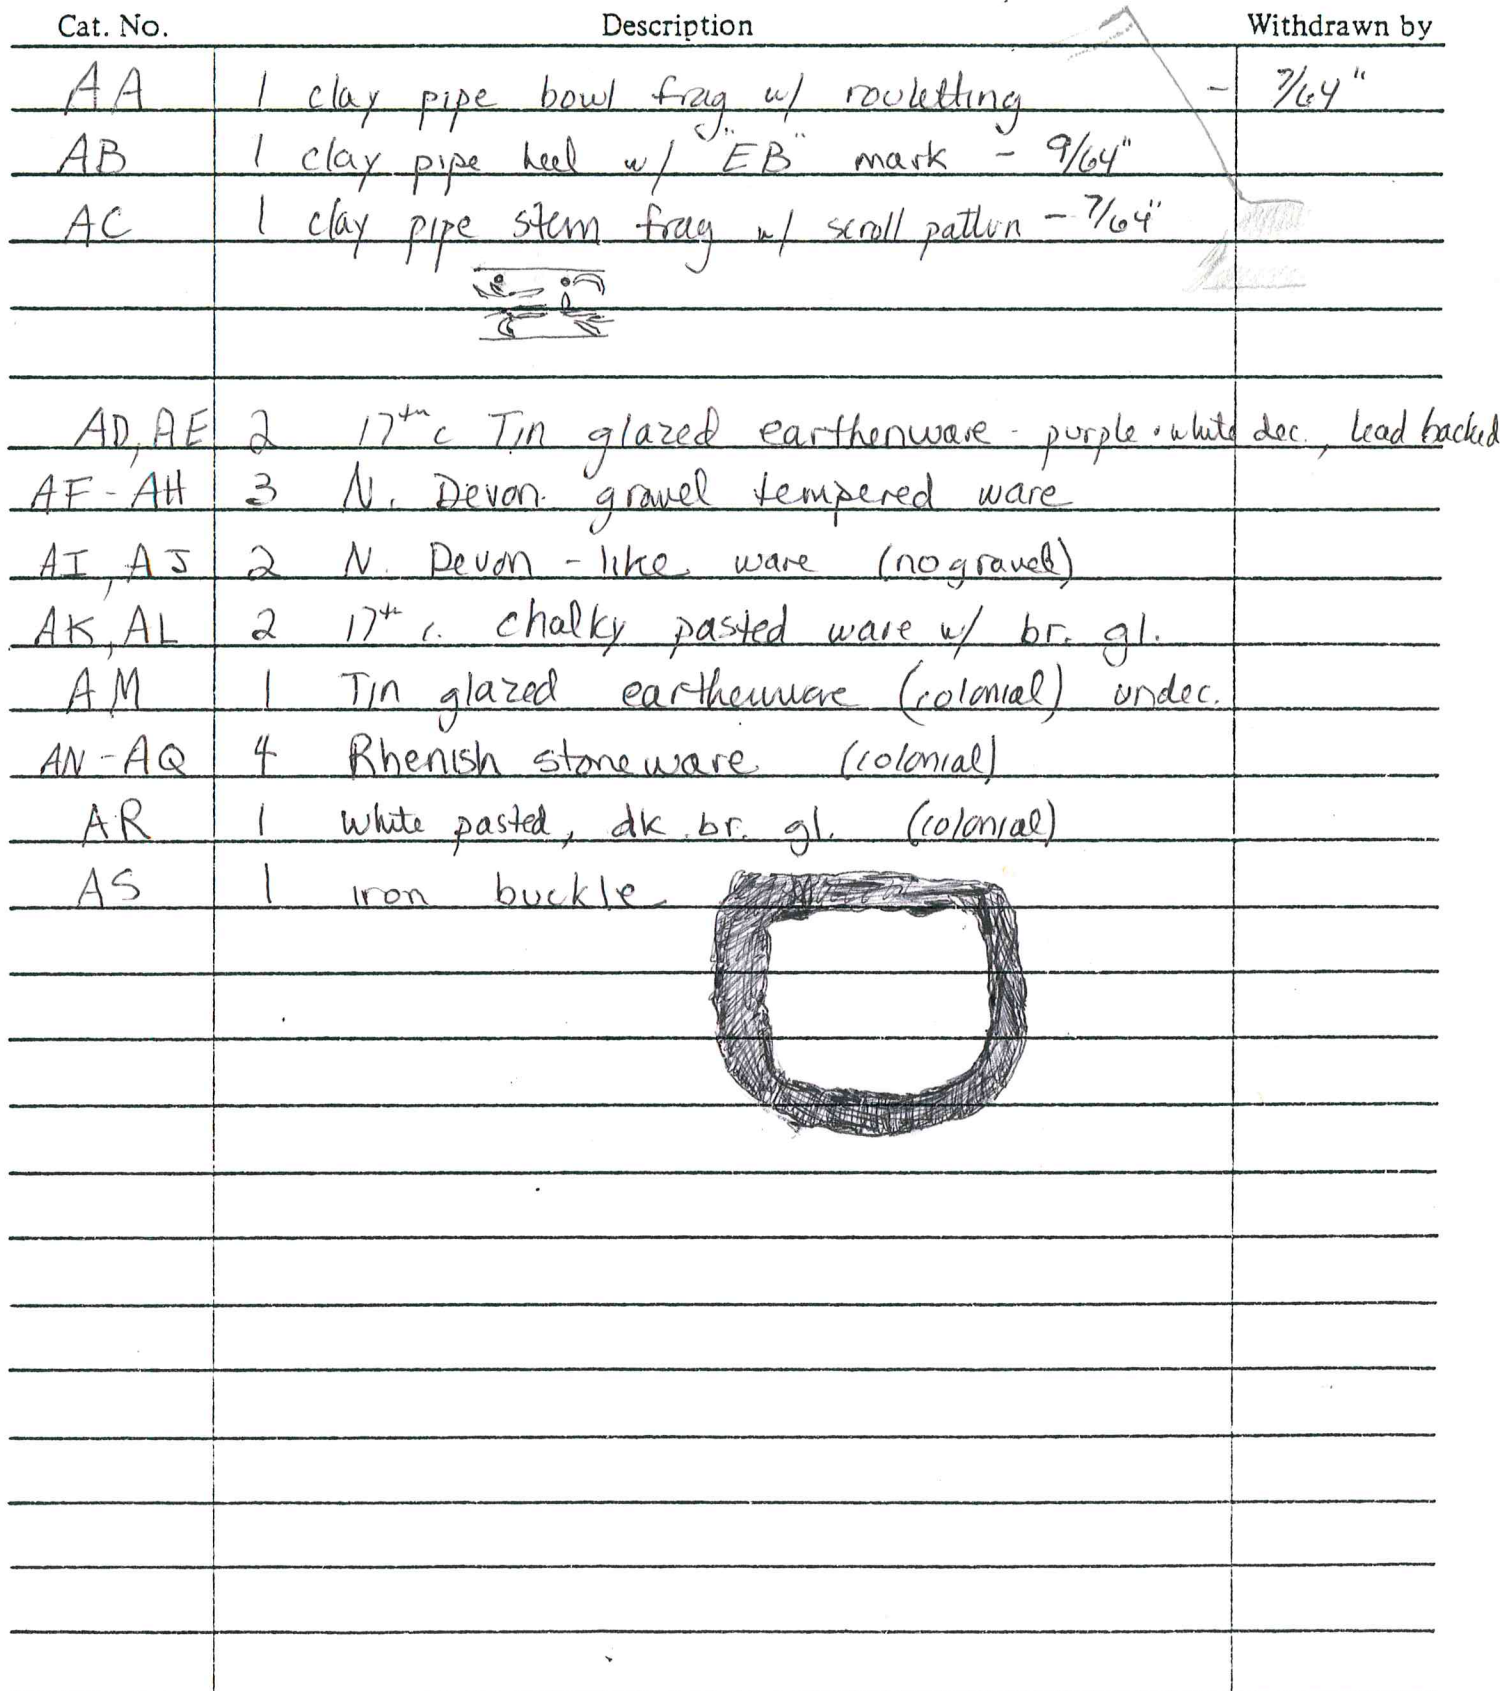 Cat. No. Description Withdrawn by
AA 1 clay pipe bowl frag w/ rouletting - 7/64"
AB 1 clay pipe heel w/ "EB" mark - 9/64"
AC 1 clay pipe stem frag w/ scroll pattern - 7/64"
AD, AE 2 17th c Tin glazed earthenware - purple + white dec., lead backed
AF - AH 3 N. Devon gravel tempered ware
AI, AJ 2 N. Devon - like ware (no gravel)
AK, AL 2 17th c. chalky pasted ware w/ br. gl.
AM 1 Tin glazed earthenware (colonial) undec.
AN - AQ 4 Rhenish stoneware (colonial)
AR 1 white pasted, dk. br. gl. (colonial)
AS 1 iron buckle